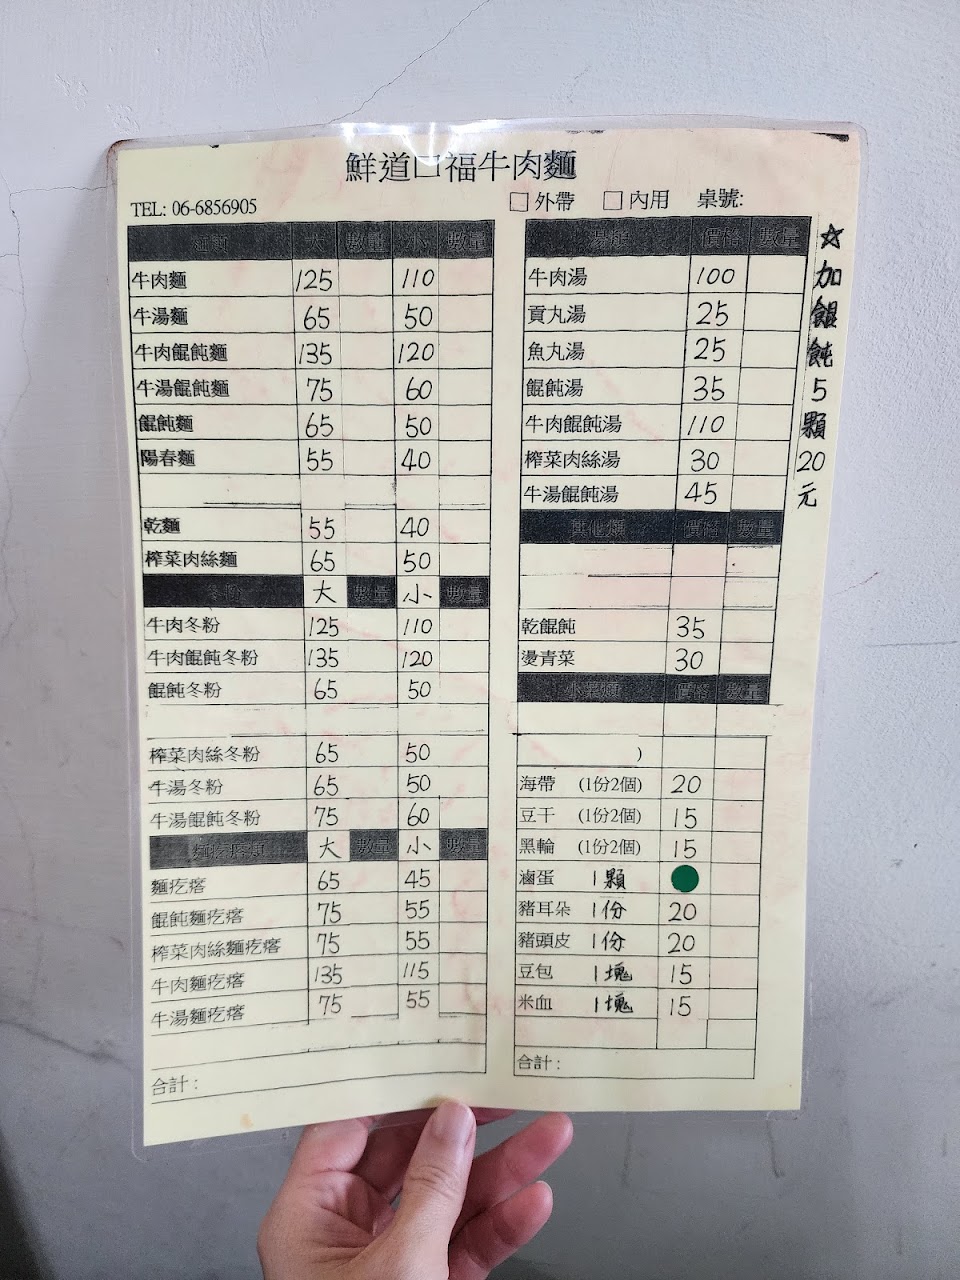 鮮道口福牛肉麵
TEL: 06-6856905
外帶 內用 桌號:
大 數量 小 數量
牛肉麵 125 110
牛湯麵 65 50
牛肉餛飩麵 135 120
牛湯餛飩麵 75 60
餛飩麵 65 50
陽春麵 55 40
乾麵 55 40
榨菜肉絲麵 65 50
大 數量 小 數量
牛肉冬粉 125 110
牛肉餛飩冬粉 135 120
餛飩冬粉 65 50
榨菜肉絲冬粉 65 50
牛湯冬粉 65 50
牛湯餛飩冬粉 75 60
大 數量 小 數量
麵疙瘩 65 45
餛飩麵疙瘩 75 55
榨菜肉絲麵疙瘩 75 55
牛肉麵疙瘩 135 115
牛湯麵疙瘩 75 55
合計:
湯類 價格 數量
牛肉湯 100
貢丸湯 25
魚丸湯 25
餛飩湯 35
牛肉餛飩湯 110
榨菜肉絲湯 30
牛湯餛飩湯 45
其他類 價格 數量
乾餛飩 35
燙青菜 30
小菜類 價格 數量
)
海帶 (1份2個) 20
豆干 (1份2個) 15
黑輪 (1份2個) 15
滷蛋 1顆
豬耳朵 1份 20
豬頭皮 1份 20
豆包 1塊 15
米血 1塊 15
合計:
☆加餛飩5顆20元